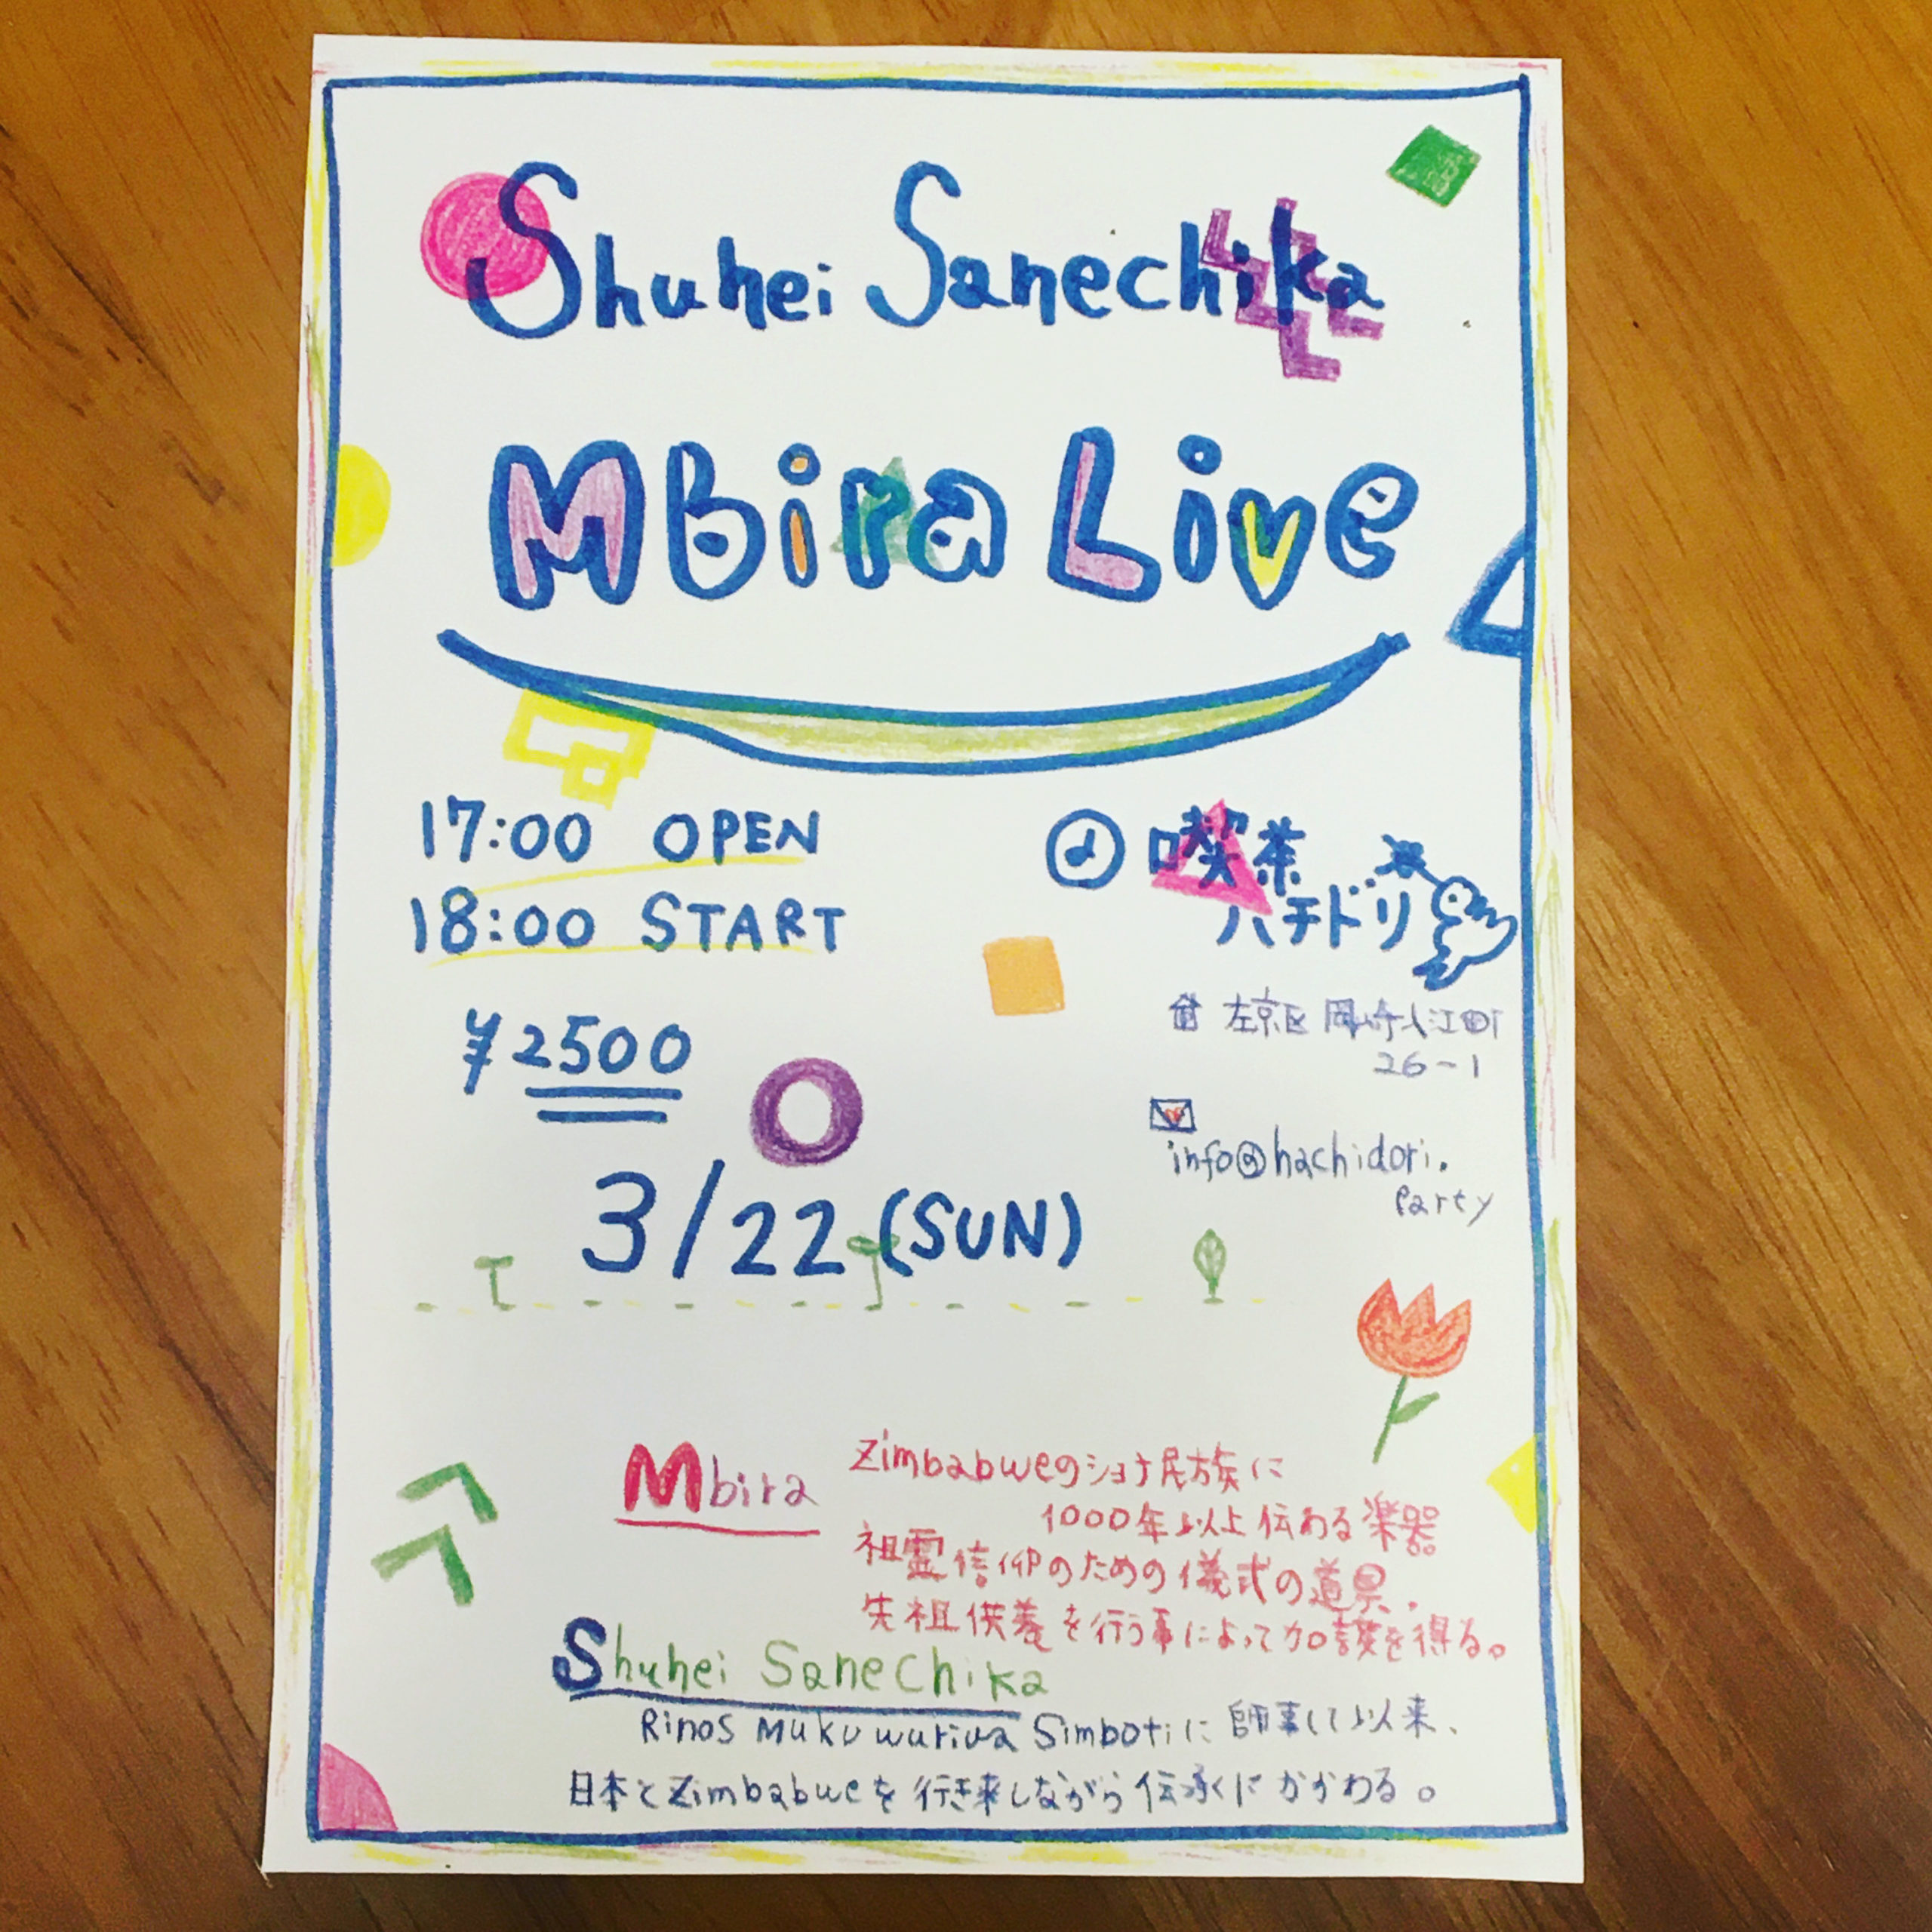 Shuhei Sanechika
Mbira Live
17:00 OPEN
18:00 START
¥2500
3/22 (SUN)
喫茶
ハチドリ
左京区 岡崎入江町
26-1
info@hachidori.
Party
Mbira
Zimbabweのショナ民族に
1000年以上伝わる楽器。
祖霊信仰のための儀式の道具。
先祖供養を行う事によって加護を得る。
Shuhei Sanechika
Rinos Mukuwurirwa Simbotiに師事して以来、
日本とZimbabweを行き来しながら伝承にかかわる。